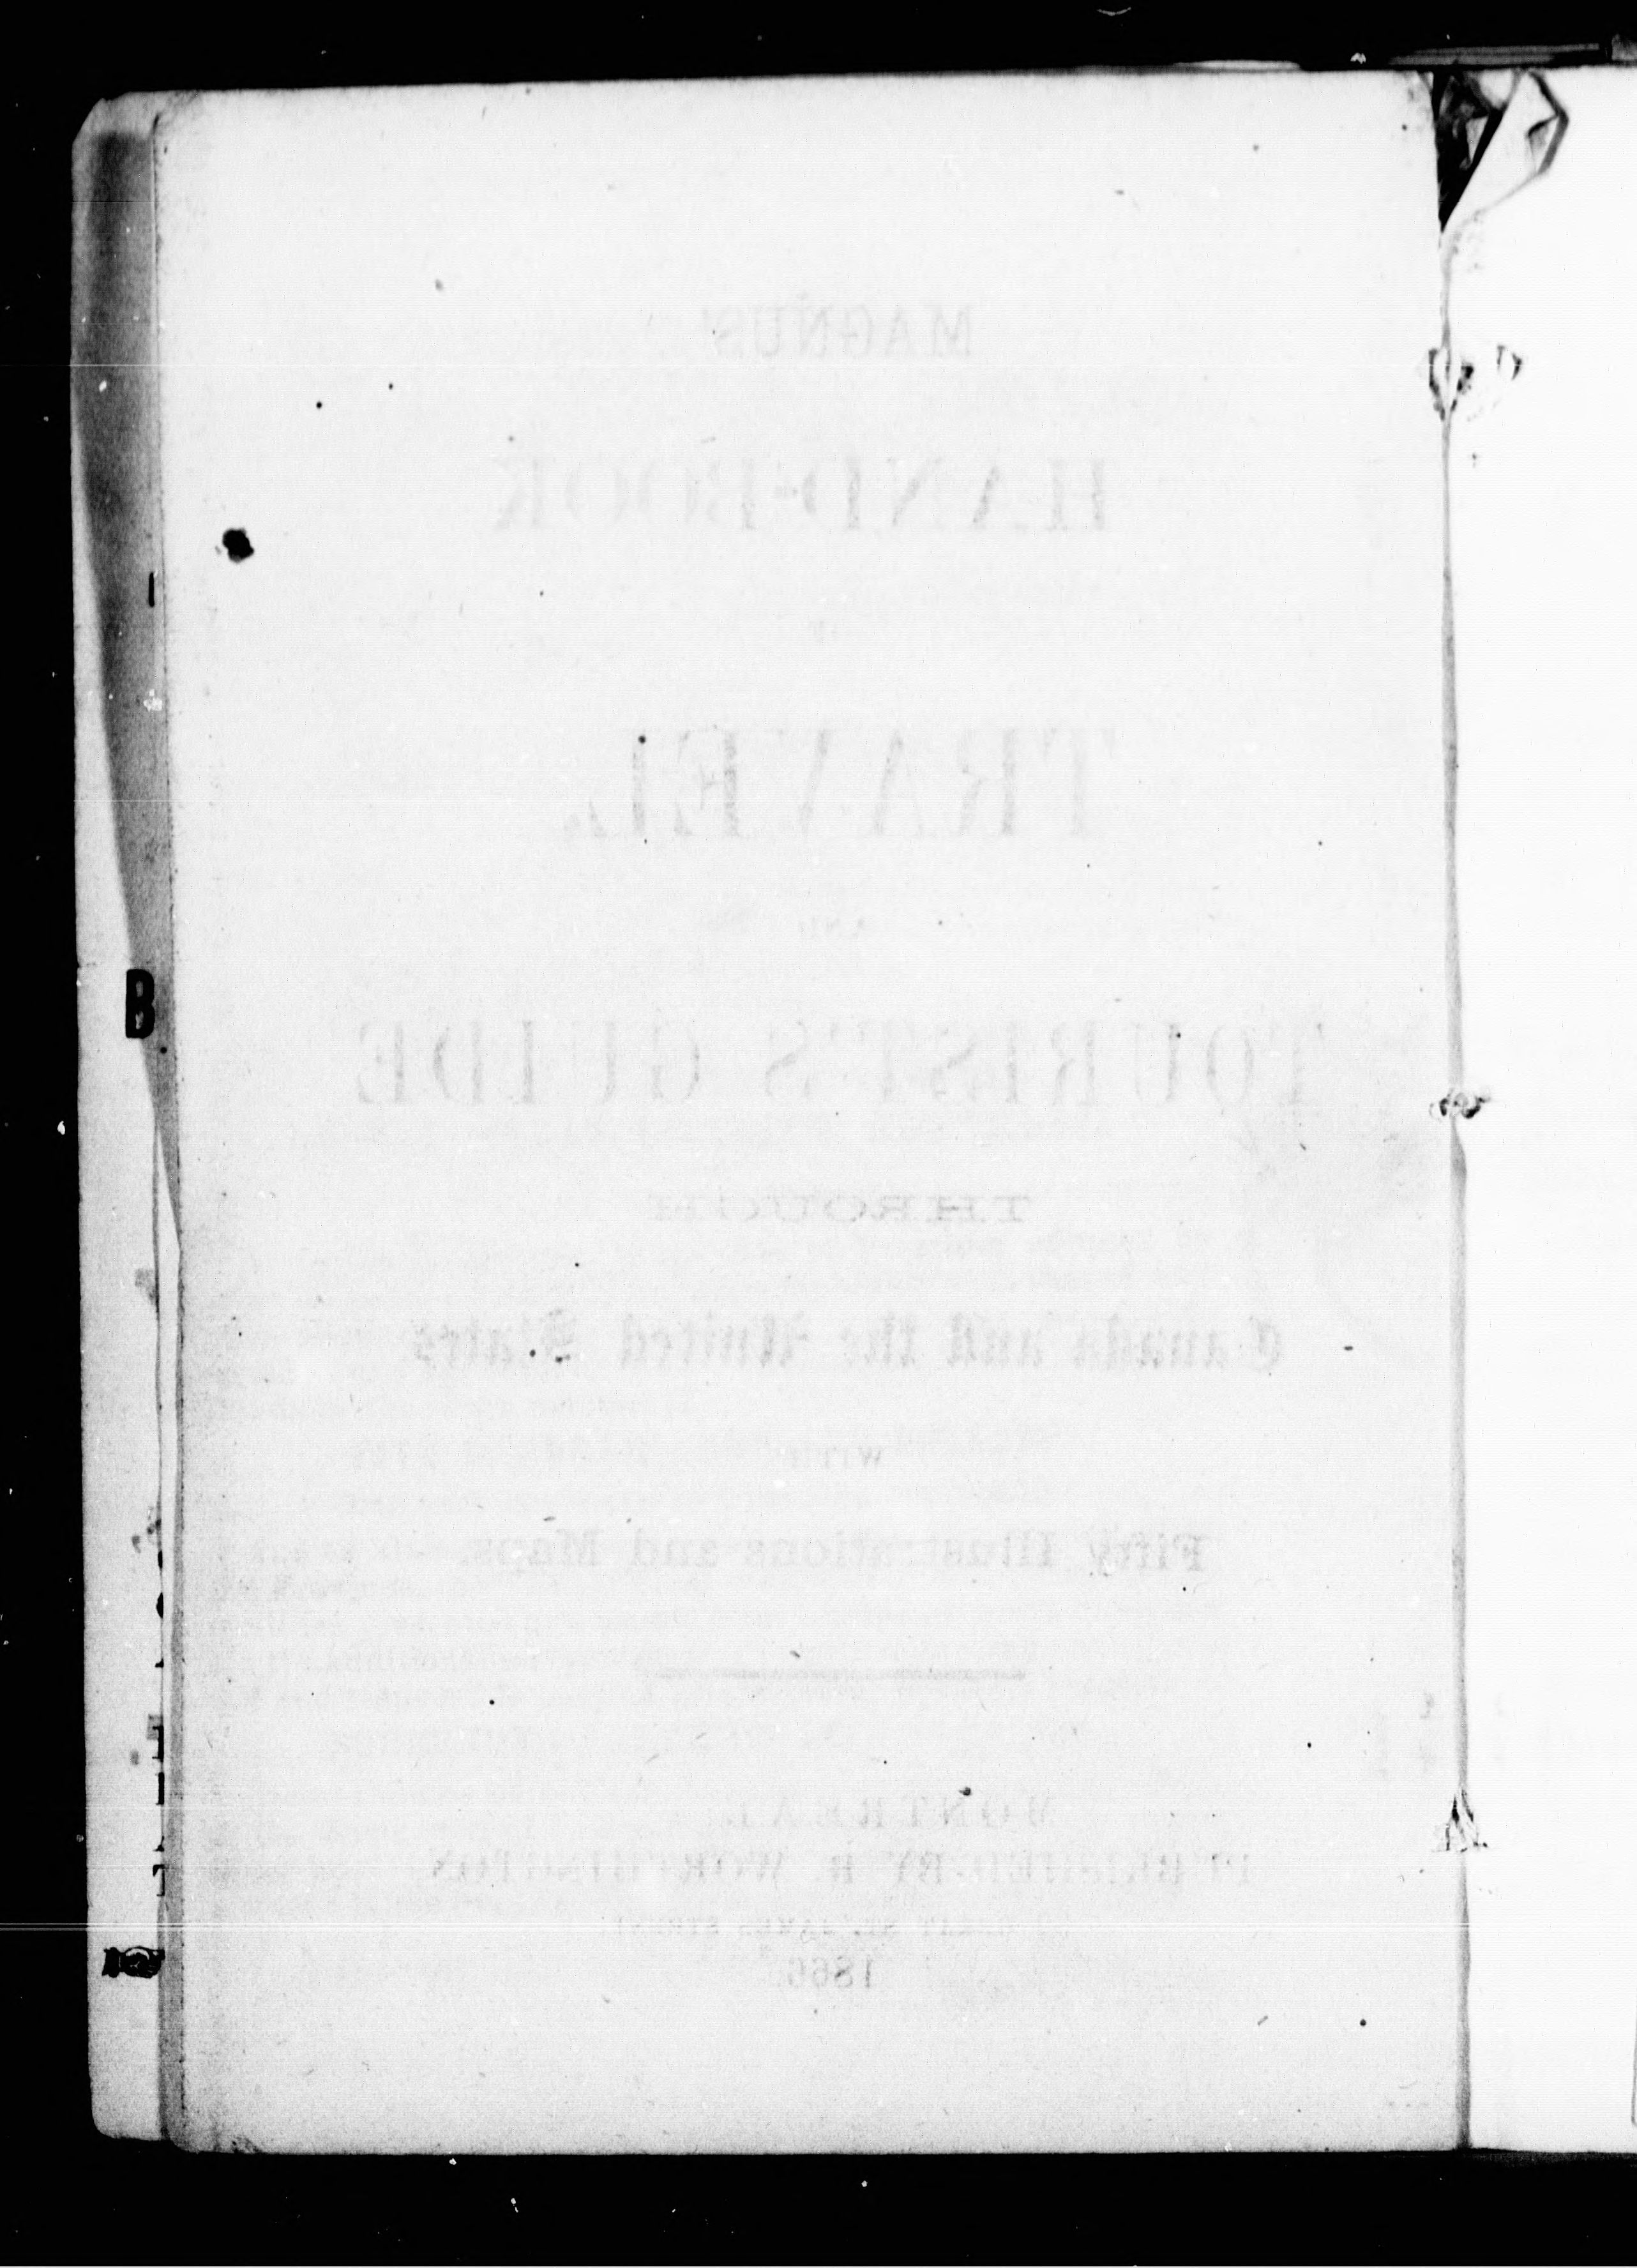 MAGNUS'
HAND-BOOK
OF
TRAVEL
AND
TOURIST'S GUIDE
THROUGH
Canada and the United States
WITH
Fifty Illustrations and Maps.
MONTREAL
PUBLISHED BY R. WORTHINGTON
ST. JAMES STREET
1866
B